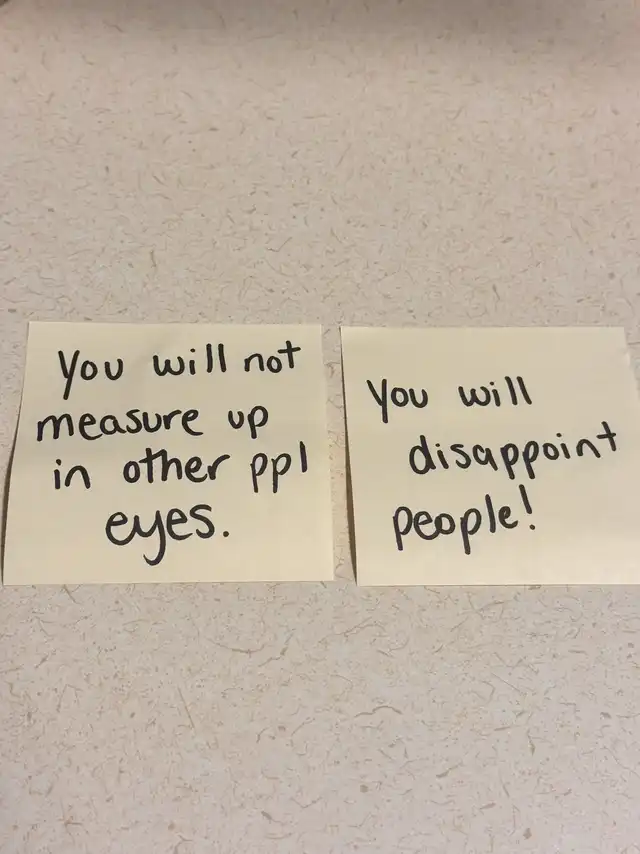 You will not
measure up
in other ppl
eyes.
You will
disappoint
people!